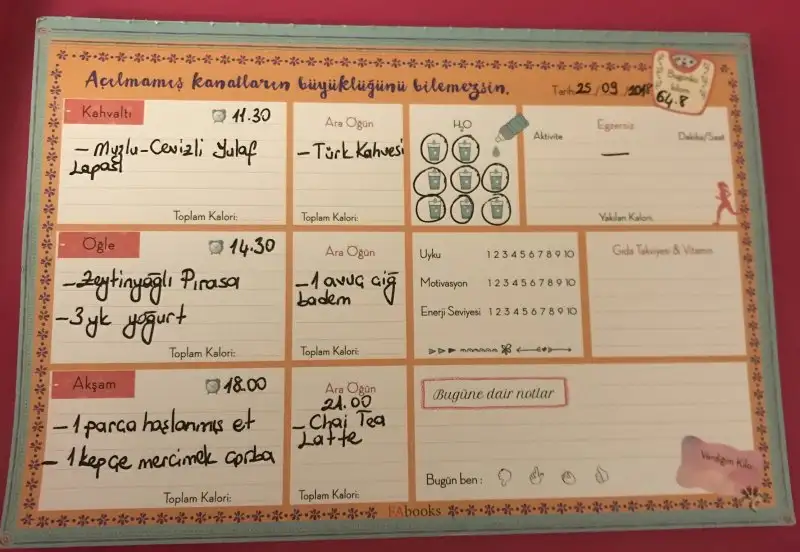 Açılmamış kanatların büyüklüğünü bilemezsin.
Tarih: 25 / 09 / 2018
Bugünkü kilom
64.8
Kahvaltı 11.30
- Muzlu-Cevizli Yulaf
Lapası
Toplam Kalori:
Ara Öğün
- Türk Kahvesi
Toplam Kalori:
H₂O
Egzersiz
Aktivite Dakika/Saat
—
Yakılan Kalori:
Öğle 14.30
- Zeytinyağlı Pırasa
- 3 yk yoğurt
Toplam Kalori:
Ara Öğün
- 1 avuç çiğ
badem
Toplam Kalori:
Uyku 1 2 3 4 5 6 7 8 9 10
Motivasyon 1 2 3 4 5 6 7 8 9 10
Enerji Seviyesi 1 2 3 4 5 6 7 8 9 10
Gıda Takviyesi & Vitamin
Akşam 18.00
- 1 parça haşlanmış et
- 1 kepçe mercimek çorba
Toplam Kalori:
Ara Öğün
21.00
- Chai Tea
Latte
Toplam Kalori:
Bugüne dair notlar
Bugün ben :
Verdiğim Kilo:
FAbooks